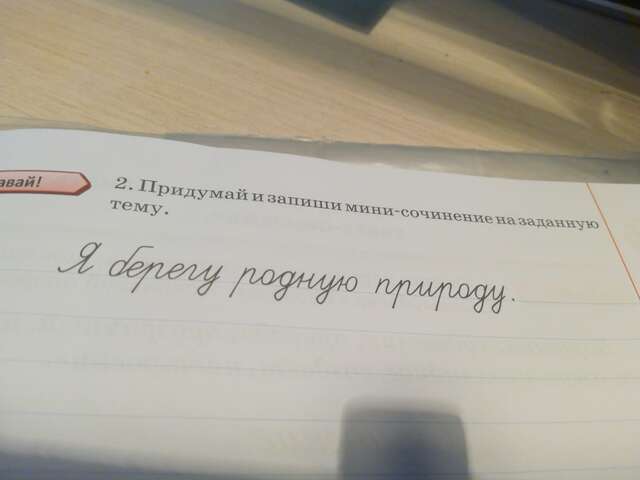 авай!
2. Придумай и запиши мини-сочинение на заданную
тему.
Я берегу родную природу.